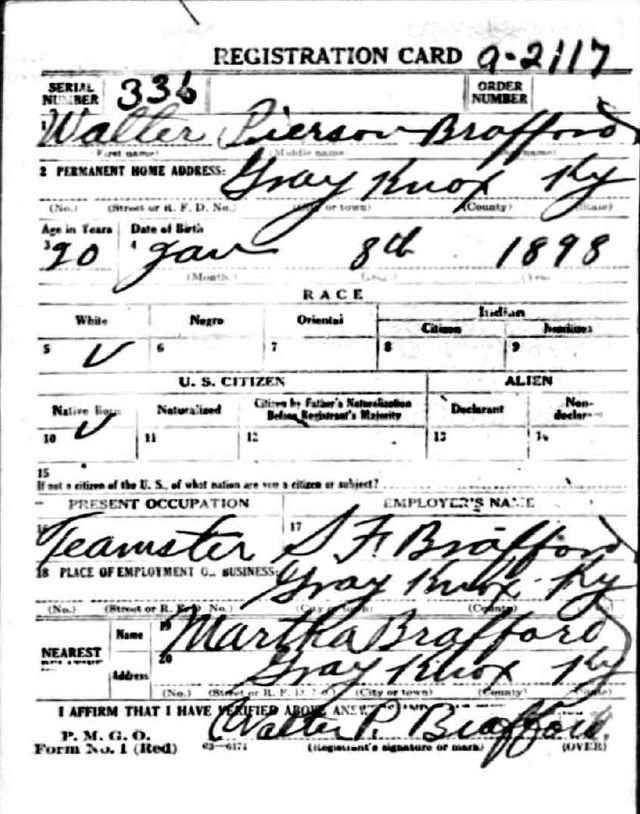 REGISTRATION CARD 9-2117
SERIAL NUMBER 336 ORDER NUMBER
1 Walter Pierson Brafford
(First name) (Middle name)
2 PERMANENT HOME ADDRESS: Gray Knox Ky
(No.) (Street or R. F. D. No.) (City or town) (County) (State)
Age in Years Date of Birth
3 20 4 Jan 8th 1898
(Month)
RACE
White Negro Oriental Indian
Citizen
5 ✓ 6 7 8 9
U. S. CITIZEN ALIEN
Native Born Naturalized Citizen by Father's Naturalization Before Registrant's Majority Declarant Non-declarant
10 ✓ 11 12 13 14
15
If not a citizen of the U. S., of what nation are you a citizen or subject?
PRESENT OCCUPATION EMPLOYER'S NAME
16 Teamster 17 S F Brafford
18 PLACE OF EMPLOYMENT OR BUSINESS: Gray Knox Ky
(No.) (Street or R. F. D. No.) (City or town) (County)
NEAREST RELATIVE Name 19 Martha Brafford
Address 20 Gray Knox Ky
(No.) (Street or R. F. D. No.) (City or town) (County) (State)
I AFFIRM THAT I HAVE VERIFIED ABOVE
P. M. G. O.
Form No. 1 (Red) 03—6171 Walter P. Brafford
(Registrant's signature or mark) (OVER)